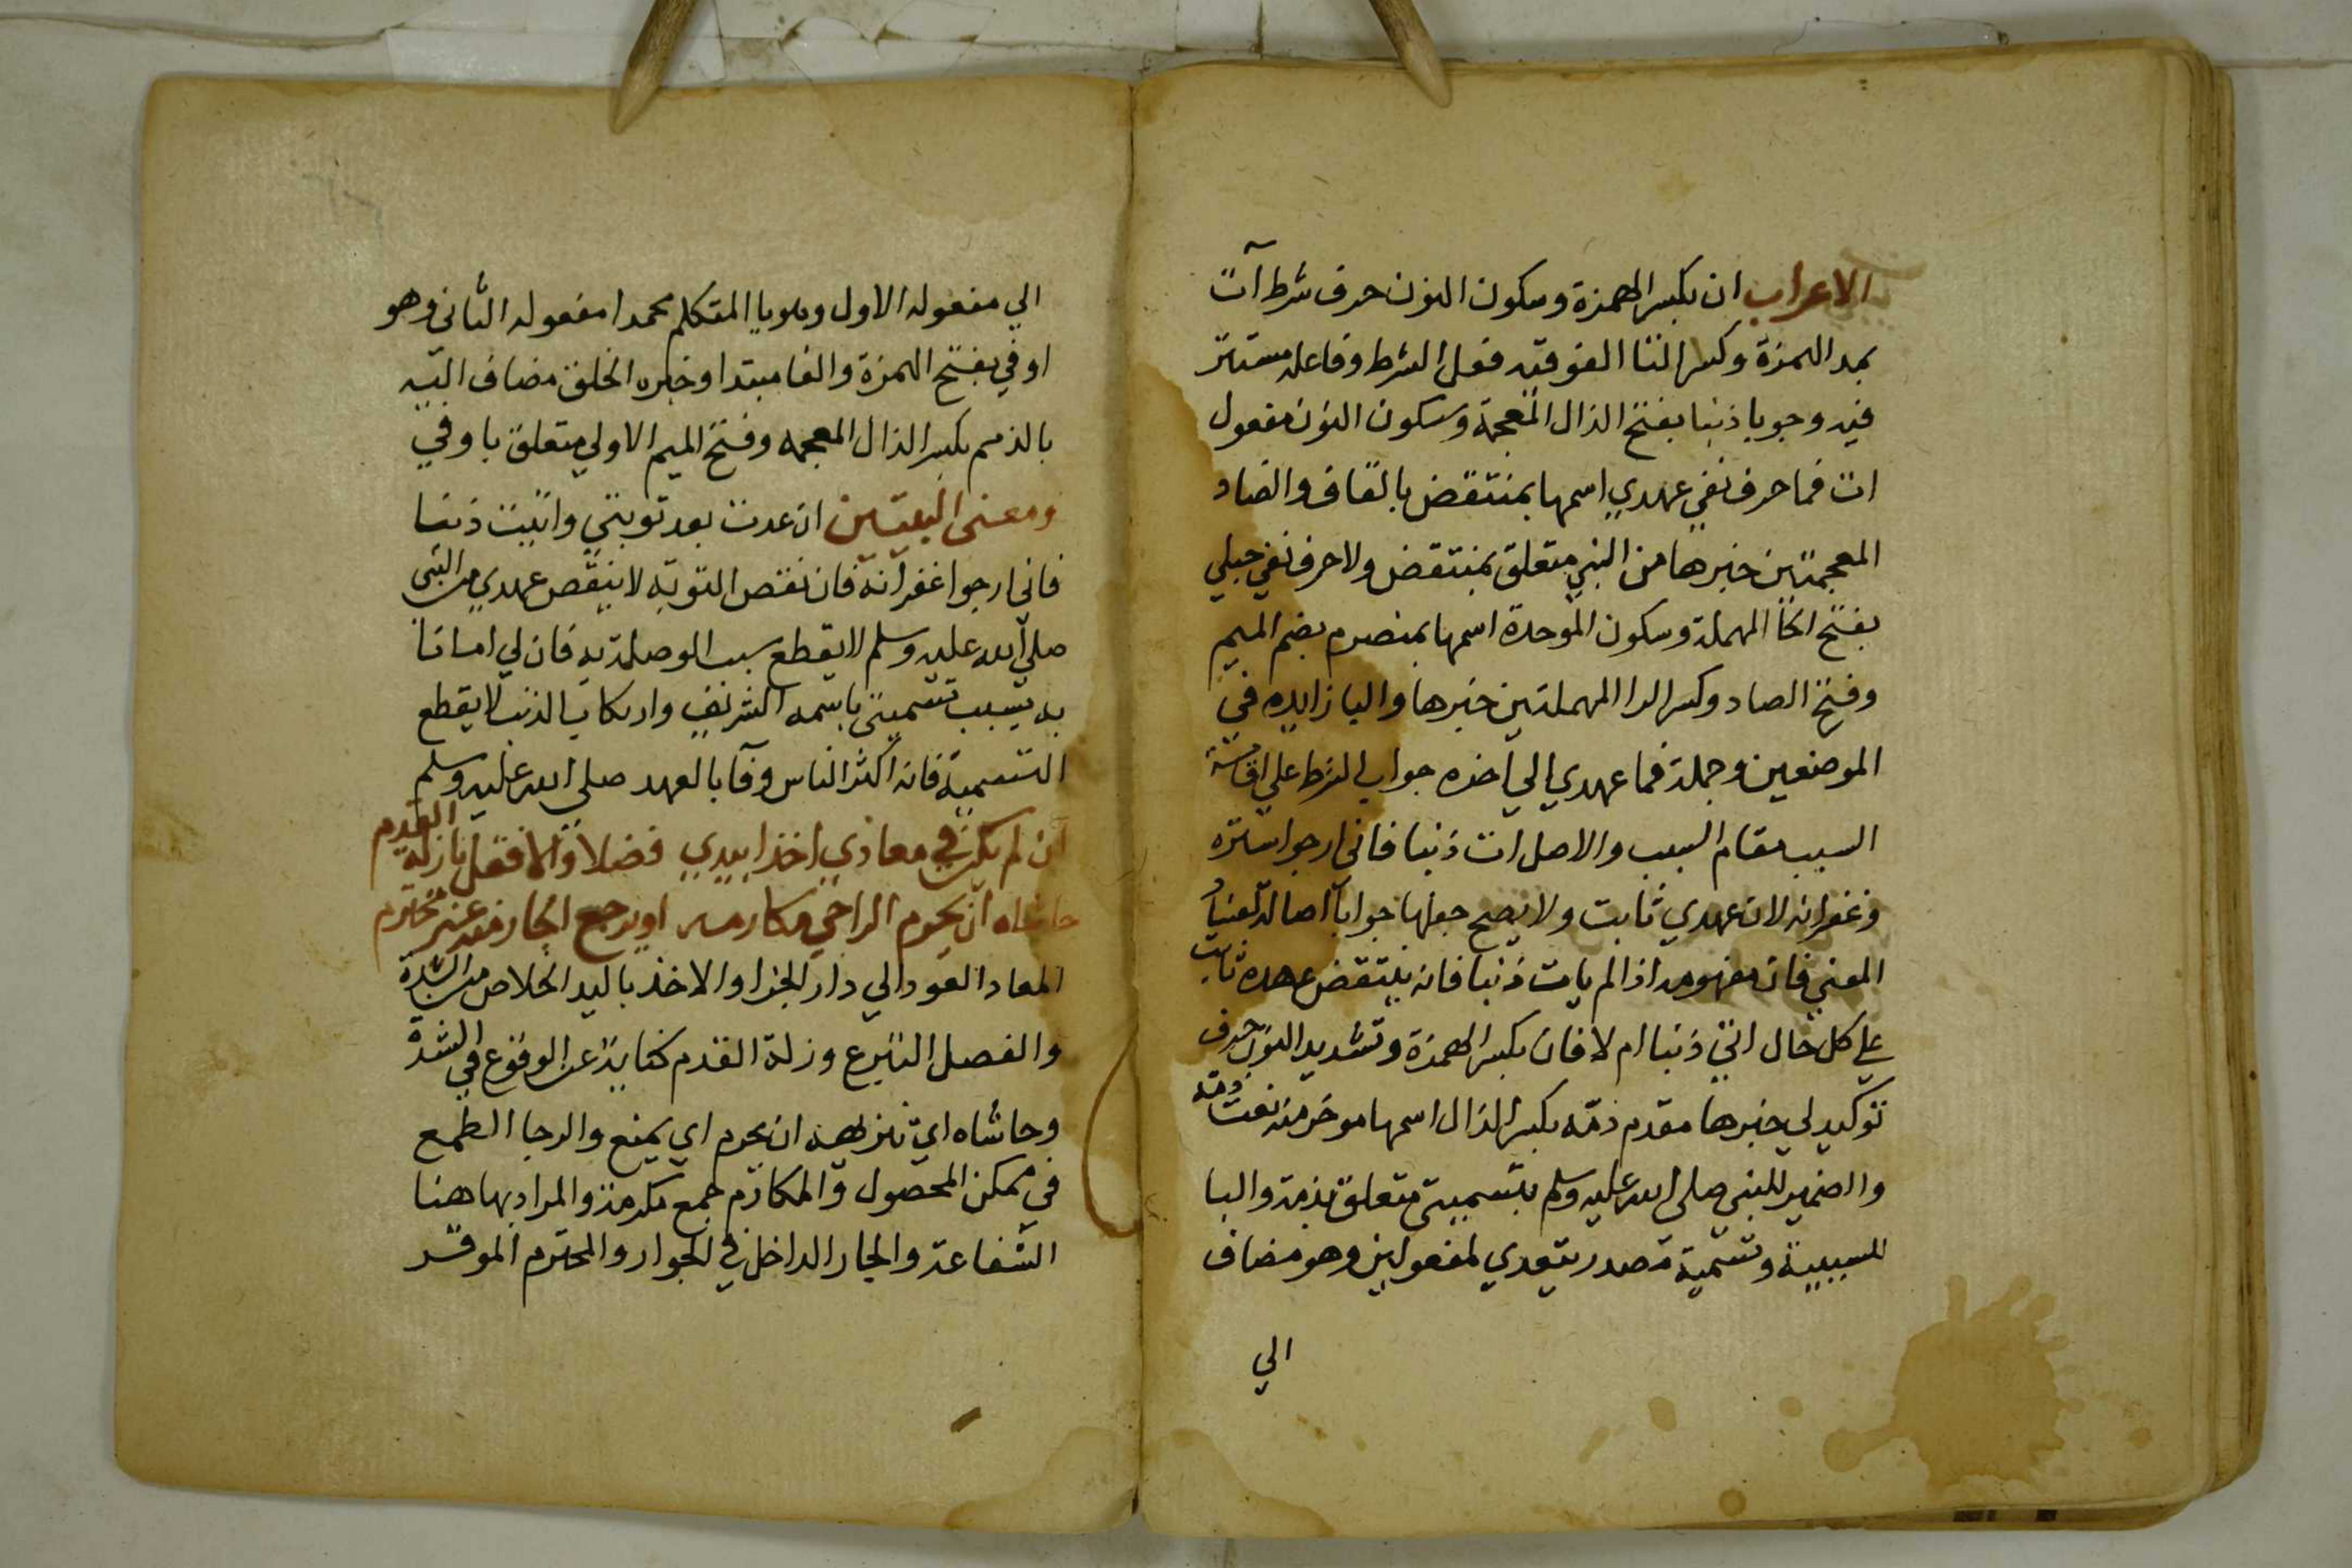 الاعراب ان بكسر الهمزة وسكون النون حرف شرط آت
بمد الهمزة وكسر التا الفوقيه فعل الشرط وفاعله مستتر
فيه وجوبا ذنبا بفتح الذال المعجمة وسكون النون مفعول
ات فما حرف نفي عهدي اسمها بمنتقض بالقاف والضاد
المعجمتين خبرها من النبي متعلق بمنتقض ولا حرف نفي حبلي
بفتح الحا المهملة وسكون الموحدة اسمها بمنصرم بضم الميم
وفتح الصاد وكسر الرا المهملتين خبرها والبا زايده في
الموضعين وجملة فما عهدي الي اخره جواب الشرط علي اقامة
السبب مقام المسبب والاصل ات ذنبا فاني ارجوا ستره
وغفرانه لان عهدي ثابت ولا يصح جعلها جوابا اصالة لفساد
المعني فان مفهومه اذا لم يات ذنبا فانه ينتقض عهده ثابت
علي كل حال اتي ذنبا ام لا فان بكسر الهمزة وتشديد النون حرف
توكيد لي خبرها مقدم ذمة بكسر الذال اسمها موخر منه نعت ذمة
والضمير للنبي صلي الله عليه وسلم بتسميتي متعلق بذمة والبا
للسببية وتسمية مصدر يتعدي لمفعولين وهو مضاف
الي
الي مفعوله الاول وهو يا المتكلم محمدا مفعوله الثاني وهو
اوفي بفتح الهمزة والفا مبتدا وخبره الخلق مضاف اليه
بالذمم بكسر الذال المعجمه وفتح الميم الاولي متعلق باوفي
ومعنى البيتين ان عدت بعد توبتي واتيت ذنبا
فاني ارجوا غفرانه فان نقض التوبة لا ينقض عهدي من النبي
صلي الله عليه وسلم لا يقطع سبب الوصلة به فان لي امانا
به بسبب تسميتي باسمه الشريف وارتكاب الذنب لا يقطع
التسمية فانه اكثر الناس وفآ بالعهد صلي الله عليه وسلم
ان لم يكن في معادي اخذا بيدي فضلا والا فقل يا زلة القدم
حاشاه ان يحرم الراجي مكارمه او يرجع الجار منه غير محترم
المعاد العود الي دار الجزا والاخذ باليد الخلاص من الشدة
والفضل التبرع وزلة القدم كناية عن الوقوع في الشدة
وحاشاه اي تنزيهه ان يحرم اي يمنع والرجا الطمع
في ممكن الحصول والمكارم جمع مكرمة والمراد بها هنا
الشفاعة والجار الداخل في الجوار والمحترم الموقر